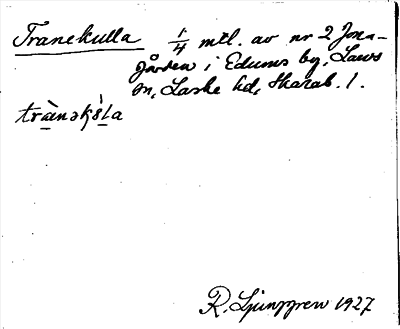 Tranekulla 1/4 mtl. av nr 2 Jona-
gården i Edums by, Laws
sn, Laske hd, Skarab. l.
R. Ljunggren 1927